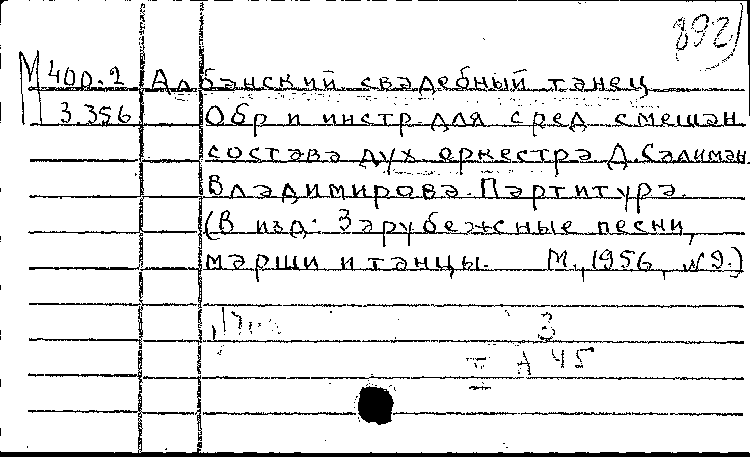 892
М 400.2 Албанский свадебный танец
3.356 Обр и инстр. для сред смешан
состава дух оркестра Д. Салиман
Владимирова. Партитура.
(В изд: Зарубежные песни,
марши и танцы. М., 1956, №9.)
3
II А 45